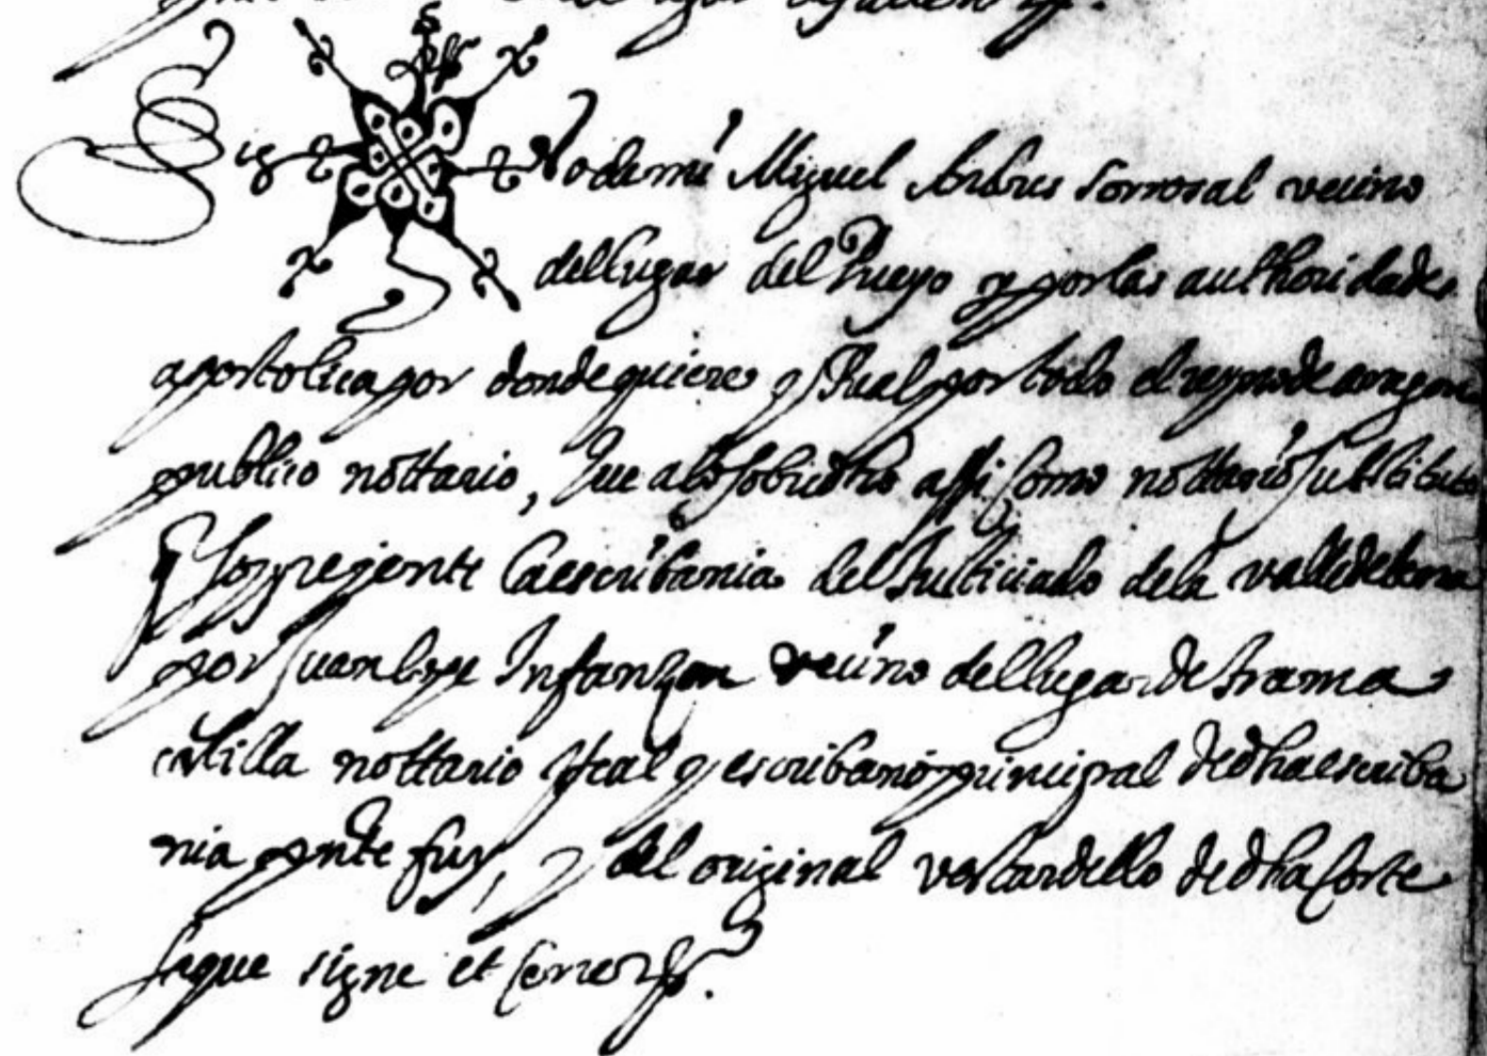 Sig no de mi Miguel Andres Sorrosal vecino
del lugar del Pueyo y por las authoridades
apostolica por donde quiere y Real por todo el reyno de aragon
publico nottario, que a lo sobredho assi como nottario substituto
y regente la escribania del Justiciado de la valle de tena
por Juan Infanzon vecino del lugar de trama
castilla nottario Real y escribano principal de dha escriba
nia pnte fuy, y del original vastardello de dha Corte
saque signe et cerre